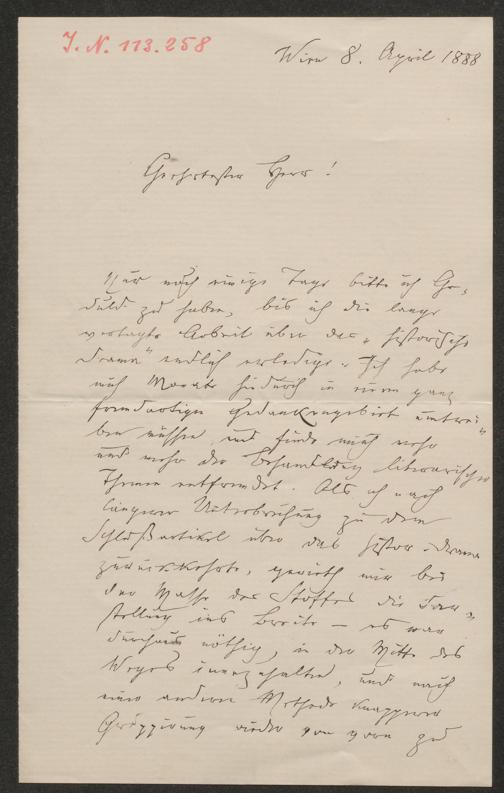 J. N. 113.258
Wien 8. April 1888
Geehrtester Herr!
Nur noch einige Tage bitte ich Ge-
duld zu haben, bis ich die lange
vertagte Arbeit über das "historische
Drama" endlich erledige. Ich habe
mich Monate hindurch in einem ganz
fremdartigen Gedankengebiet umtrei-
ben müssen, und finde mich mehr
und mehr der Behandlung literarischer
Themen entfremdet. Als ich nach
längerer Unterbrechung zu dem
Schlußartikel über das histor. Drama
zurückkehrte, gerieth mir bei
der Masse des Stoffes die Dar-
stellung ins Breite – es war
durchaus nöthig, in der Mitte des
Weges innezuhalten, und nach
einer anderen Methode knapperer
Gruppirung wieder von vorn zu